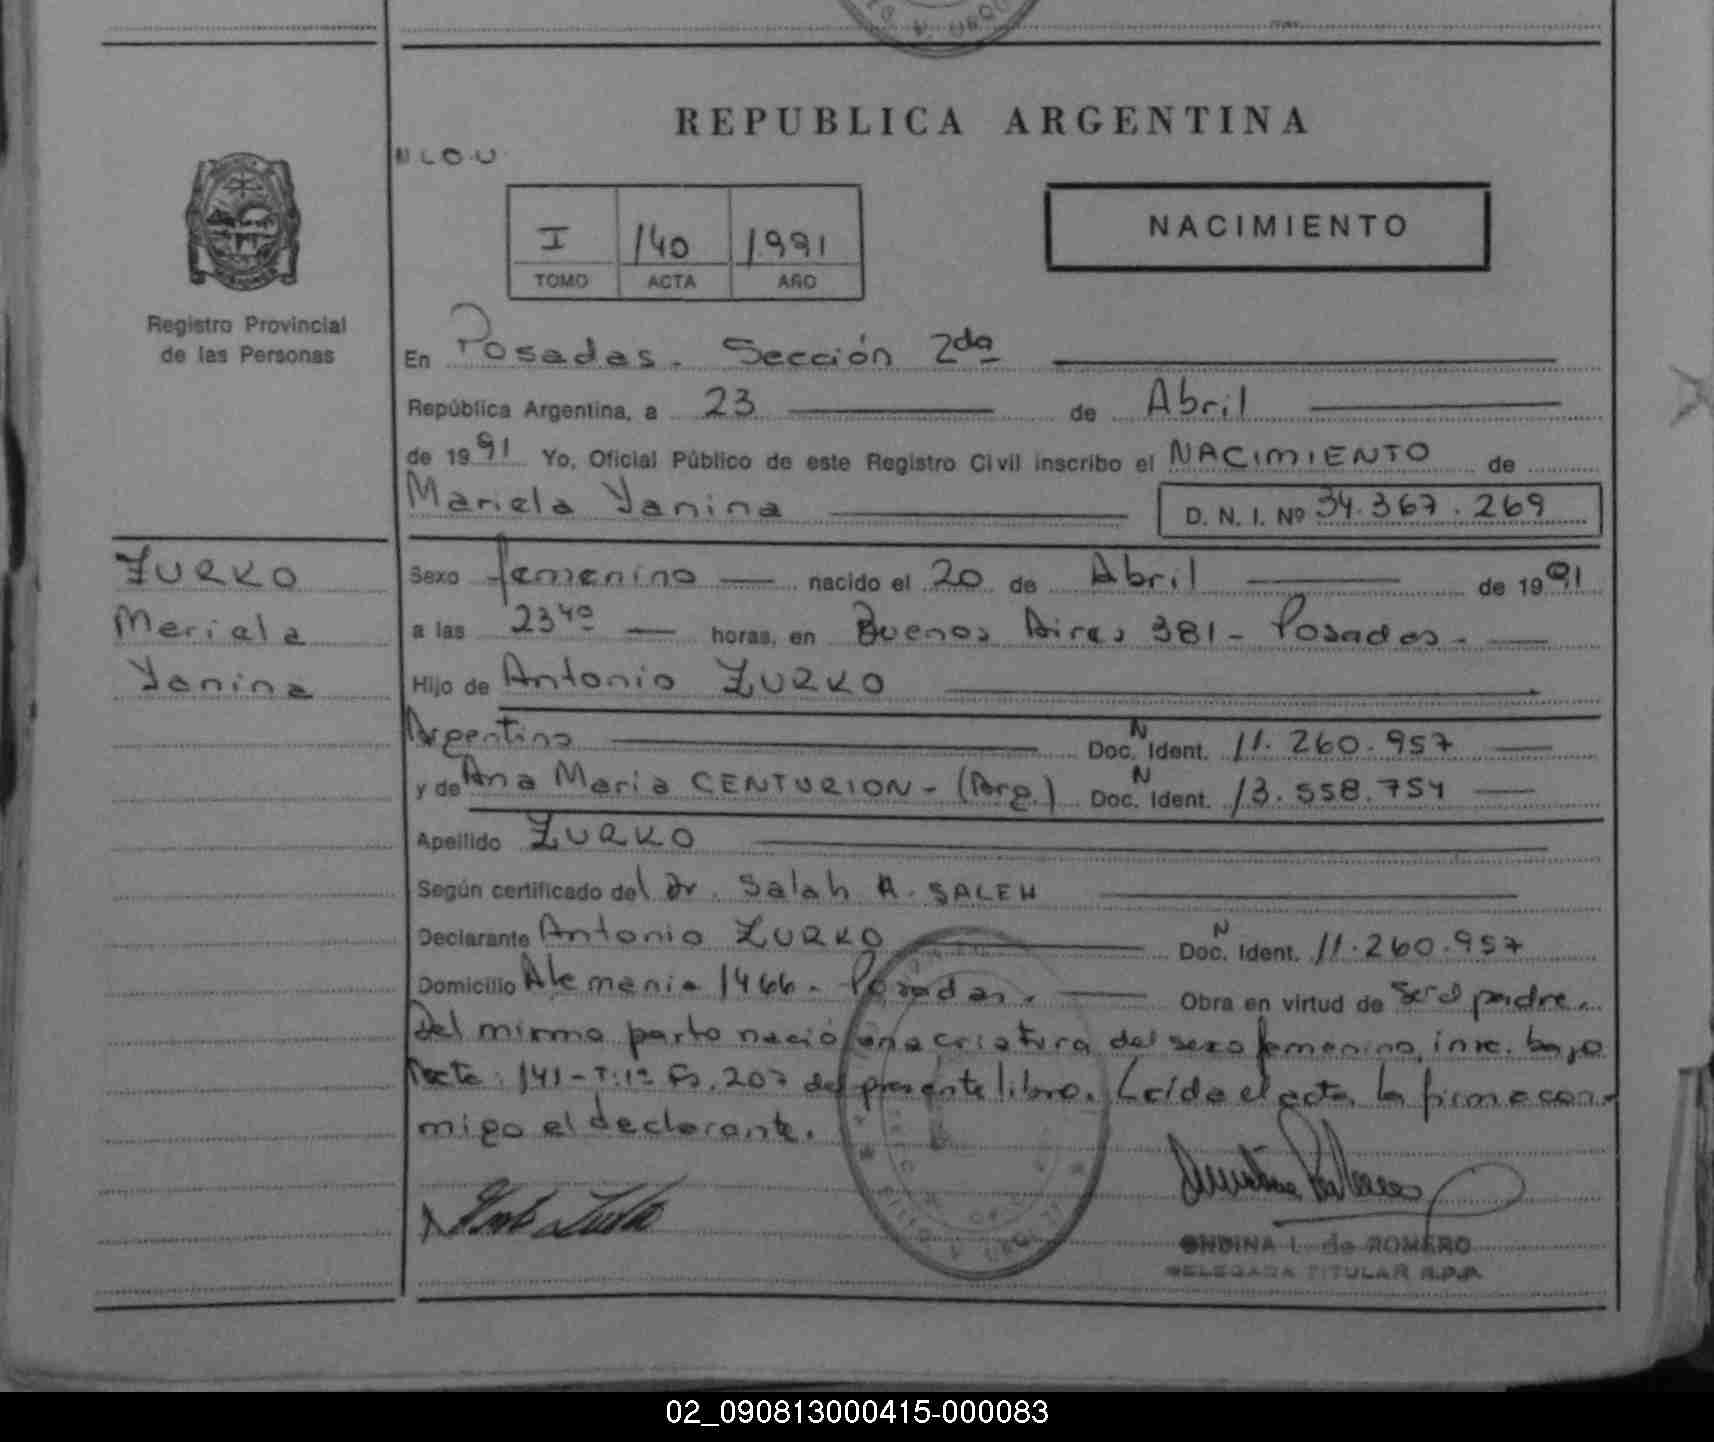 REPUBLICA ARGENTINA
NACIMIENTO
I 140 1.991
TOMO ACTA AÑO
Registro Provincial
de las Personas
En Posadas - Sección 2da
República Argentina, a 23 de Abril
de 1991 Yo, Oficial Público de este Registro Civil inscribo el NACIMIENTO de
Mariela Yanina D. N. I. Nº 34.367.269
ZURKO
Mariela
Yanina
Sexo femenino nacido el 20 de Abril de 1991
a las 23 40 horas, en Buenos Aires 381 - Posadas -
Hijo de Antonio ZURKO
Argentino Doc. N Ident. 11.260.957
y de Ana Maria CENTURION - (Arg.) Doc. N Ident. 13.558.754
Apellido ZURKO
Según certificado del Dr. Salah A. SALEH
Declarante Antonio ZURKO Doc. N Ident. 11.260.957
Domicilio Alemania 1466 - Posadas. Obra en virtud de ser el padre.
Del mismo parto nació una criatura del sexo femenino, insc. bajo
Acta: 141 - T: 1º Fs. 207 del presente libro. Leída el acta, la firma con-
migo el declarante.
ONDINA I. de ROMERO
DELEGADA TITULAR R.P.P.
02_090813000415-000083